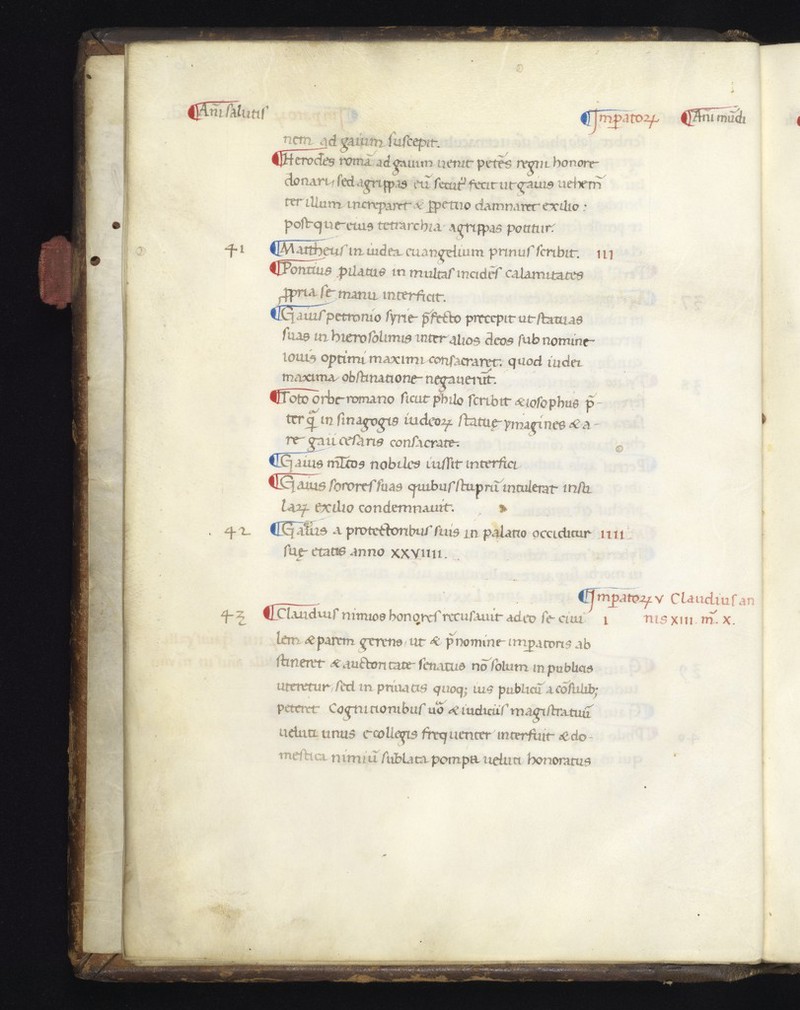 Anī salutis Imꝑatoꝝ Anī mūdi
nem ad gaium suscepit.
Herodes romā ad gaium uenit petēs regni honore
donari, sed agrippas eū secutꝰ fecit ut gaius uehem̄
ter illum increparet & ꝑpetuo damnaret exilio:
postque eius tetrarchia agrippas potitur.
41 Mattheus in iudea euangelium primus scribit. III
Pontius pilatus in multas incidēs calamitates
ꝓpria se manu interficit.
Gaius petronio syrie p̄fecto precepit ut statuas
suas in hierosolimis inter alios deos sub nomine
iouis optimi maximi consacraret. quod iudei
maxima obstinatione negauerūt.
Toto orbe romano sicut philo scribit & iosophus p̄
ter q̄ in sinagogis iudeoꝝ statuę ymagines & a-
re gaii cesaris consacrate.
Gaius ml̄tos nobiles iussit interfici
Gaius sorores suas quibus stuprū intulerat insu
laꝝ exilio condemnauit.
42 Gaius a protectoribus suis in palatio occiditur IIII
suę etatis anno XXVIIII.
Imꝑatoꝝ V Claudius an
43 Claudius nimios honores recusauit adeo se ciui I nis XIII. m̄. X.
lem & parem gerens, ut & p̄nomine imꝑatoris ab
stineret & auctoritate senatus nō solum in publicis
uteretur, sed in priuatis quoq; ius publicū a cōsulib;
peteret Cognitionibus uō & iudiciis magistratuū
ueluti unus e collegis frequenter interfuit & do-
mestica nimiū sublata pompa ueluti honoratus